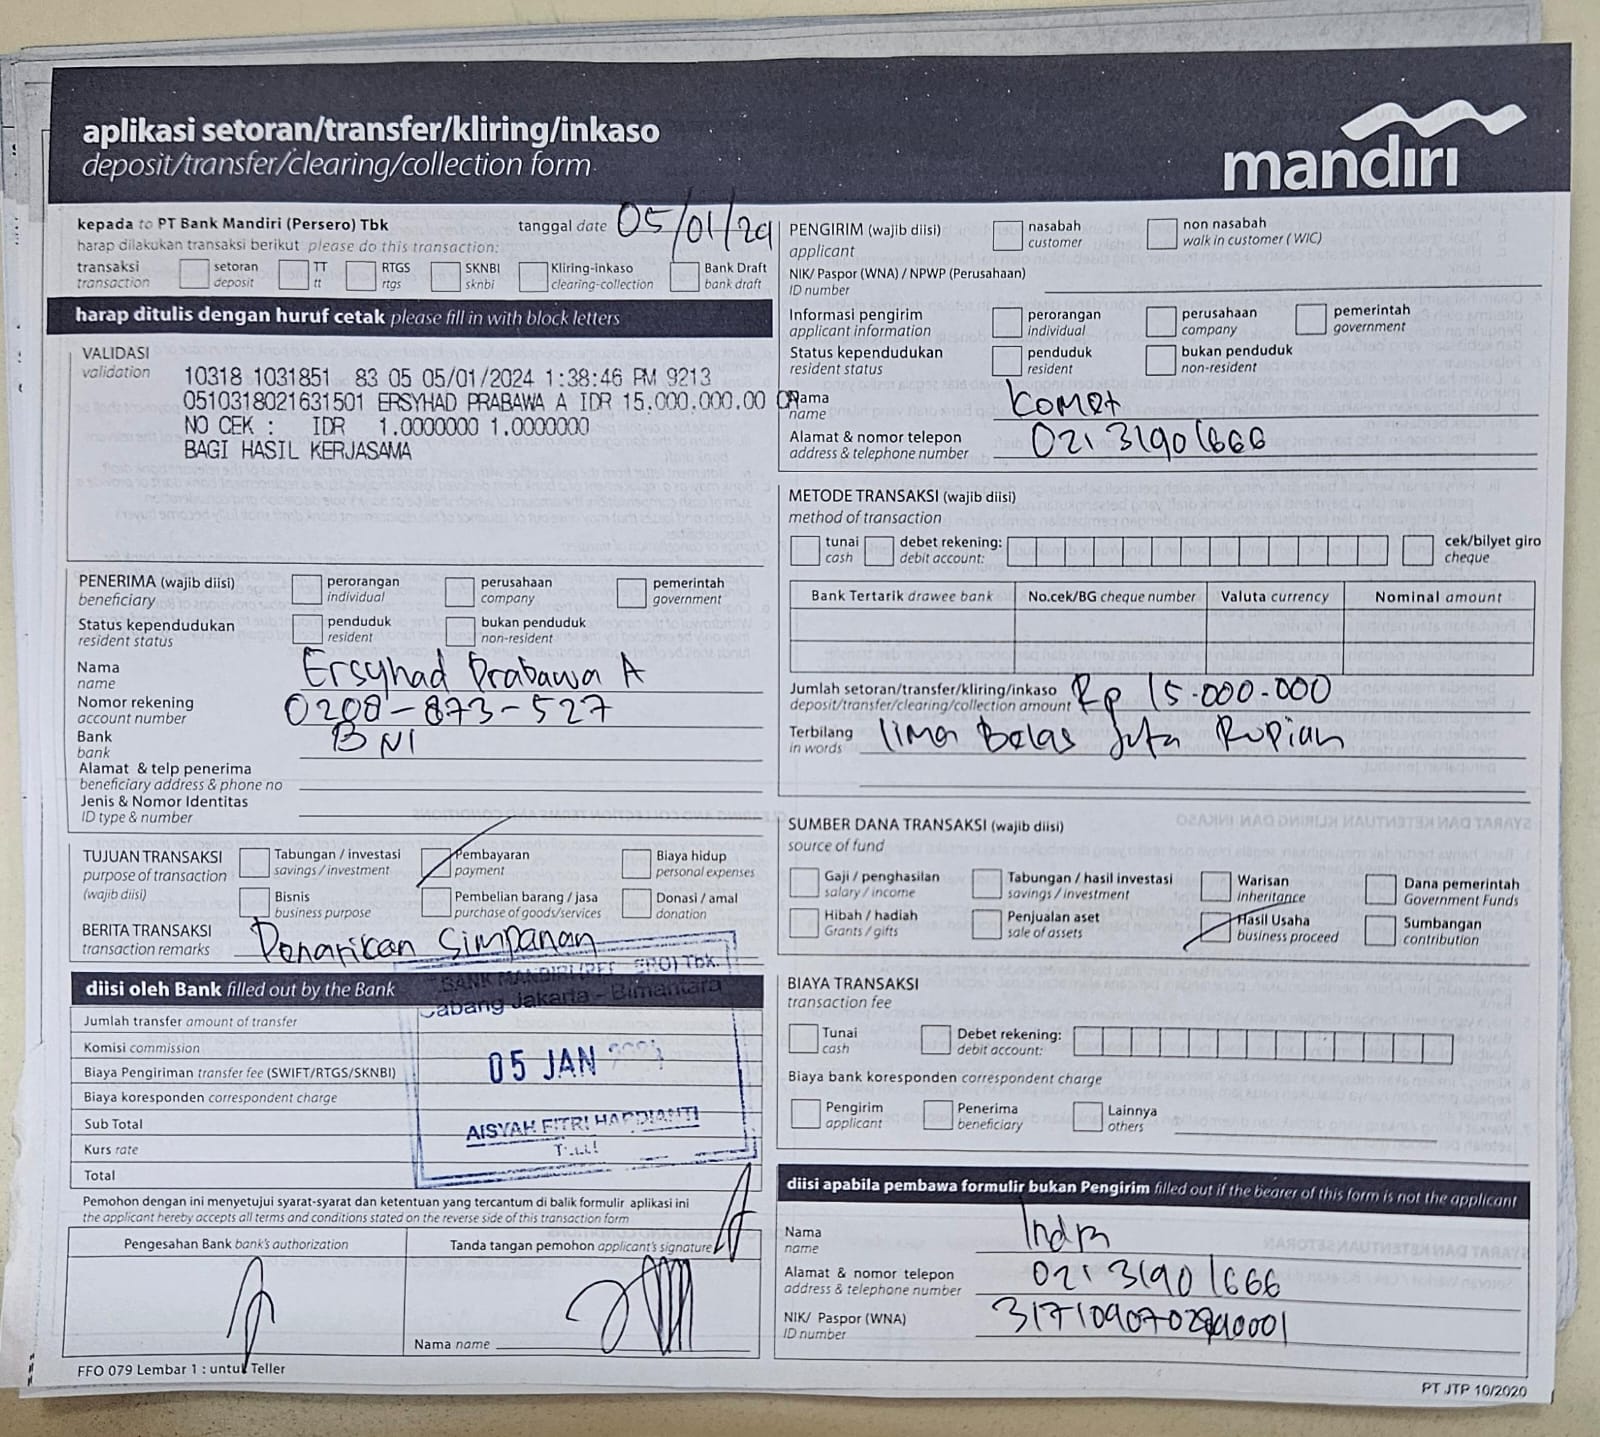 aplikasi setoran/transfer/kliring/inkaso
deposit/transfer/clearing/collection form
mandırı
kepada to PT Bank Mandiri (Persero) Tbk
tanggal date 05/01/24
harap dilakukan transaksi berikut please do this transaction:
transaksi transaction
setoran deposit
TT tt
RTGS rtgs
SKNBI sknbi
Kliring-inkaso clearing-collection
Bank Draft bank draft
harap ditulis dengan huruf cetak please fill in with block letters
VALIDASI
validation
10318 1031851 83 05 05/01/2024 1:38:46 PM 9213
0510318021631501 ERSYHAD PRABAWA A IDR 15.000.000.00 CR
NO CEK : IDR 1.0000000 1.0000000
BAGI HASIL KERJASAMA
PENERIMA (wajib diisi)
beneficiary
perorangan individual
perusahaan company
pemerintah government
Status kependudukan
resident status
penduduk resident
bukan penduduk non-resident
Nama
name
Ersyhad Prabawa A
Nomor rekening
account number
0208-873-527
Bank
bank
BNI
Alamat & telp penerima
beneficiary address & phone no
Jenis & Nomor Identitas
ID type & number
TUJUAN TRANSAKSI
purpose of transaction
(wajib diisi)
Tabungan / investasi savings / investment
Pembayaran payment
Biaya hidup personal expenses
Bisnis business purpose
Pembelian barang / jasa purchase of goods/services
Donasi / amal donation
BERITA TRANSAKSI
transaction remarks
Penarikan Simpanan
diisi oleh Bank filled out by the Bank
Jumlah transfer amount of transfer
Komisi commission
Biaya Pengiriman transfer fee (SWIFT/RTGS/SKNBI)
Biaya koresponden correspondent charge
Sub Total
Kurs rate
Total
BANK MANDIRI Tbk.
Cabang Jakarta - Bimantara
05 JAN
AISYAH FITRI HARDIANTI
Pemohon dengan ini menyetujui syarat-syarat dan ketentuan yang tercantum di balik formulir aplikasi ini
the applicant hereby accepts all terms and conditions stated on the reverse side of this transaction form
Pengesahan Bank bank's authorization
Tanda tangan pemohon applicant's signature
Nama name
FFO 079 Lembar 1 : untuk Teller
PENGIRIM (wajib diisi)
applicant
nasabah customer
non nasabah walk in customer ( WIC)
NIK/ Paspor (WNA) / NPWP (Perusahaan)
ID number
Informasi pengirim
applicant information
perorangan individual
perusahaan company
pemerintah government
Status kependudukan
resident status
penduduk resident
bukan penduduk non-resident
Nama
name
Komet
Alamat & nomor telepon
address & telephone number
021 31901666
METODE TRANSAKSI (wajib diisi)
method of transaction
tunai cash
debet rekening: debit account:
cek/bilyet giro cheque
Bank Tertarik drawee bank
No.cek/BG cheque number
Valuta currency
Nominal amount
Jumlah setoran/transfer/kliring/inkaso
deposit/transfer/clearing/collection amount
Rp 15.000.000
Terbilang
in words
lima Belas Juta Rupiah
SUMBER DANA TRANSAKSI (wajib diisi)
source of fund
Gaji / penghasilan salary / income
Tabungan / hasil investasi savings / investment
Warisan inheritance
Dana pemerintah Government Funds
Hibah / hadiah Grants / gifts
Penjualan aset sale of assets
Hasil Usaha business proceed
Sumbangan contribution
BIAYA TRANSAKSI
transaction fee
Tunai cash
Debet rekening: debit account:
Biaya bank koresponden correspondent charge
Pengirim applicant
Penerima beneficiary
Lainnya others
diisi apabila pembawa formulir bukan Pengirim filled out if the bearer of this form is not the applicant
Nama
name
Indra
Alamat & nomor telepon
address & telephone number
021 31901666
NIK/ Paspor (WNA)
ID number
PT JTP 10/2020